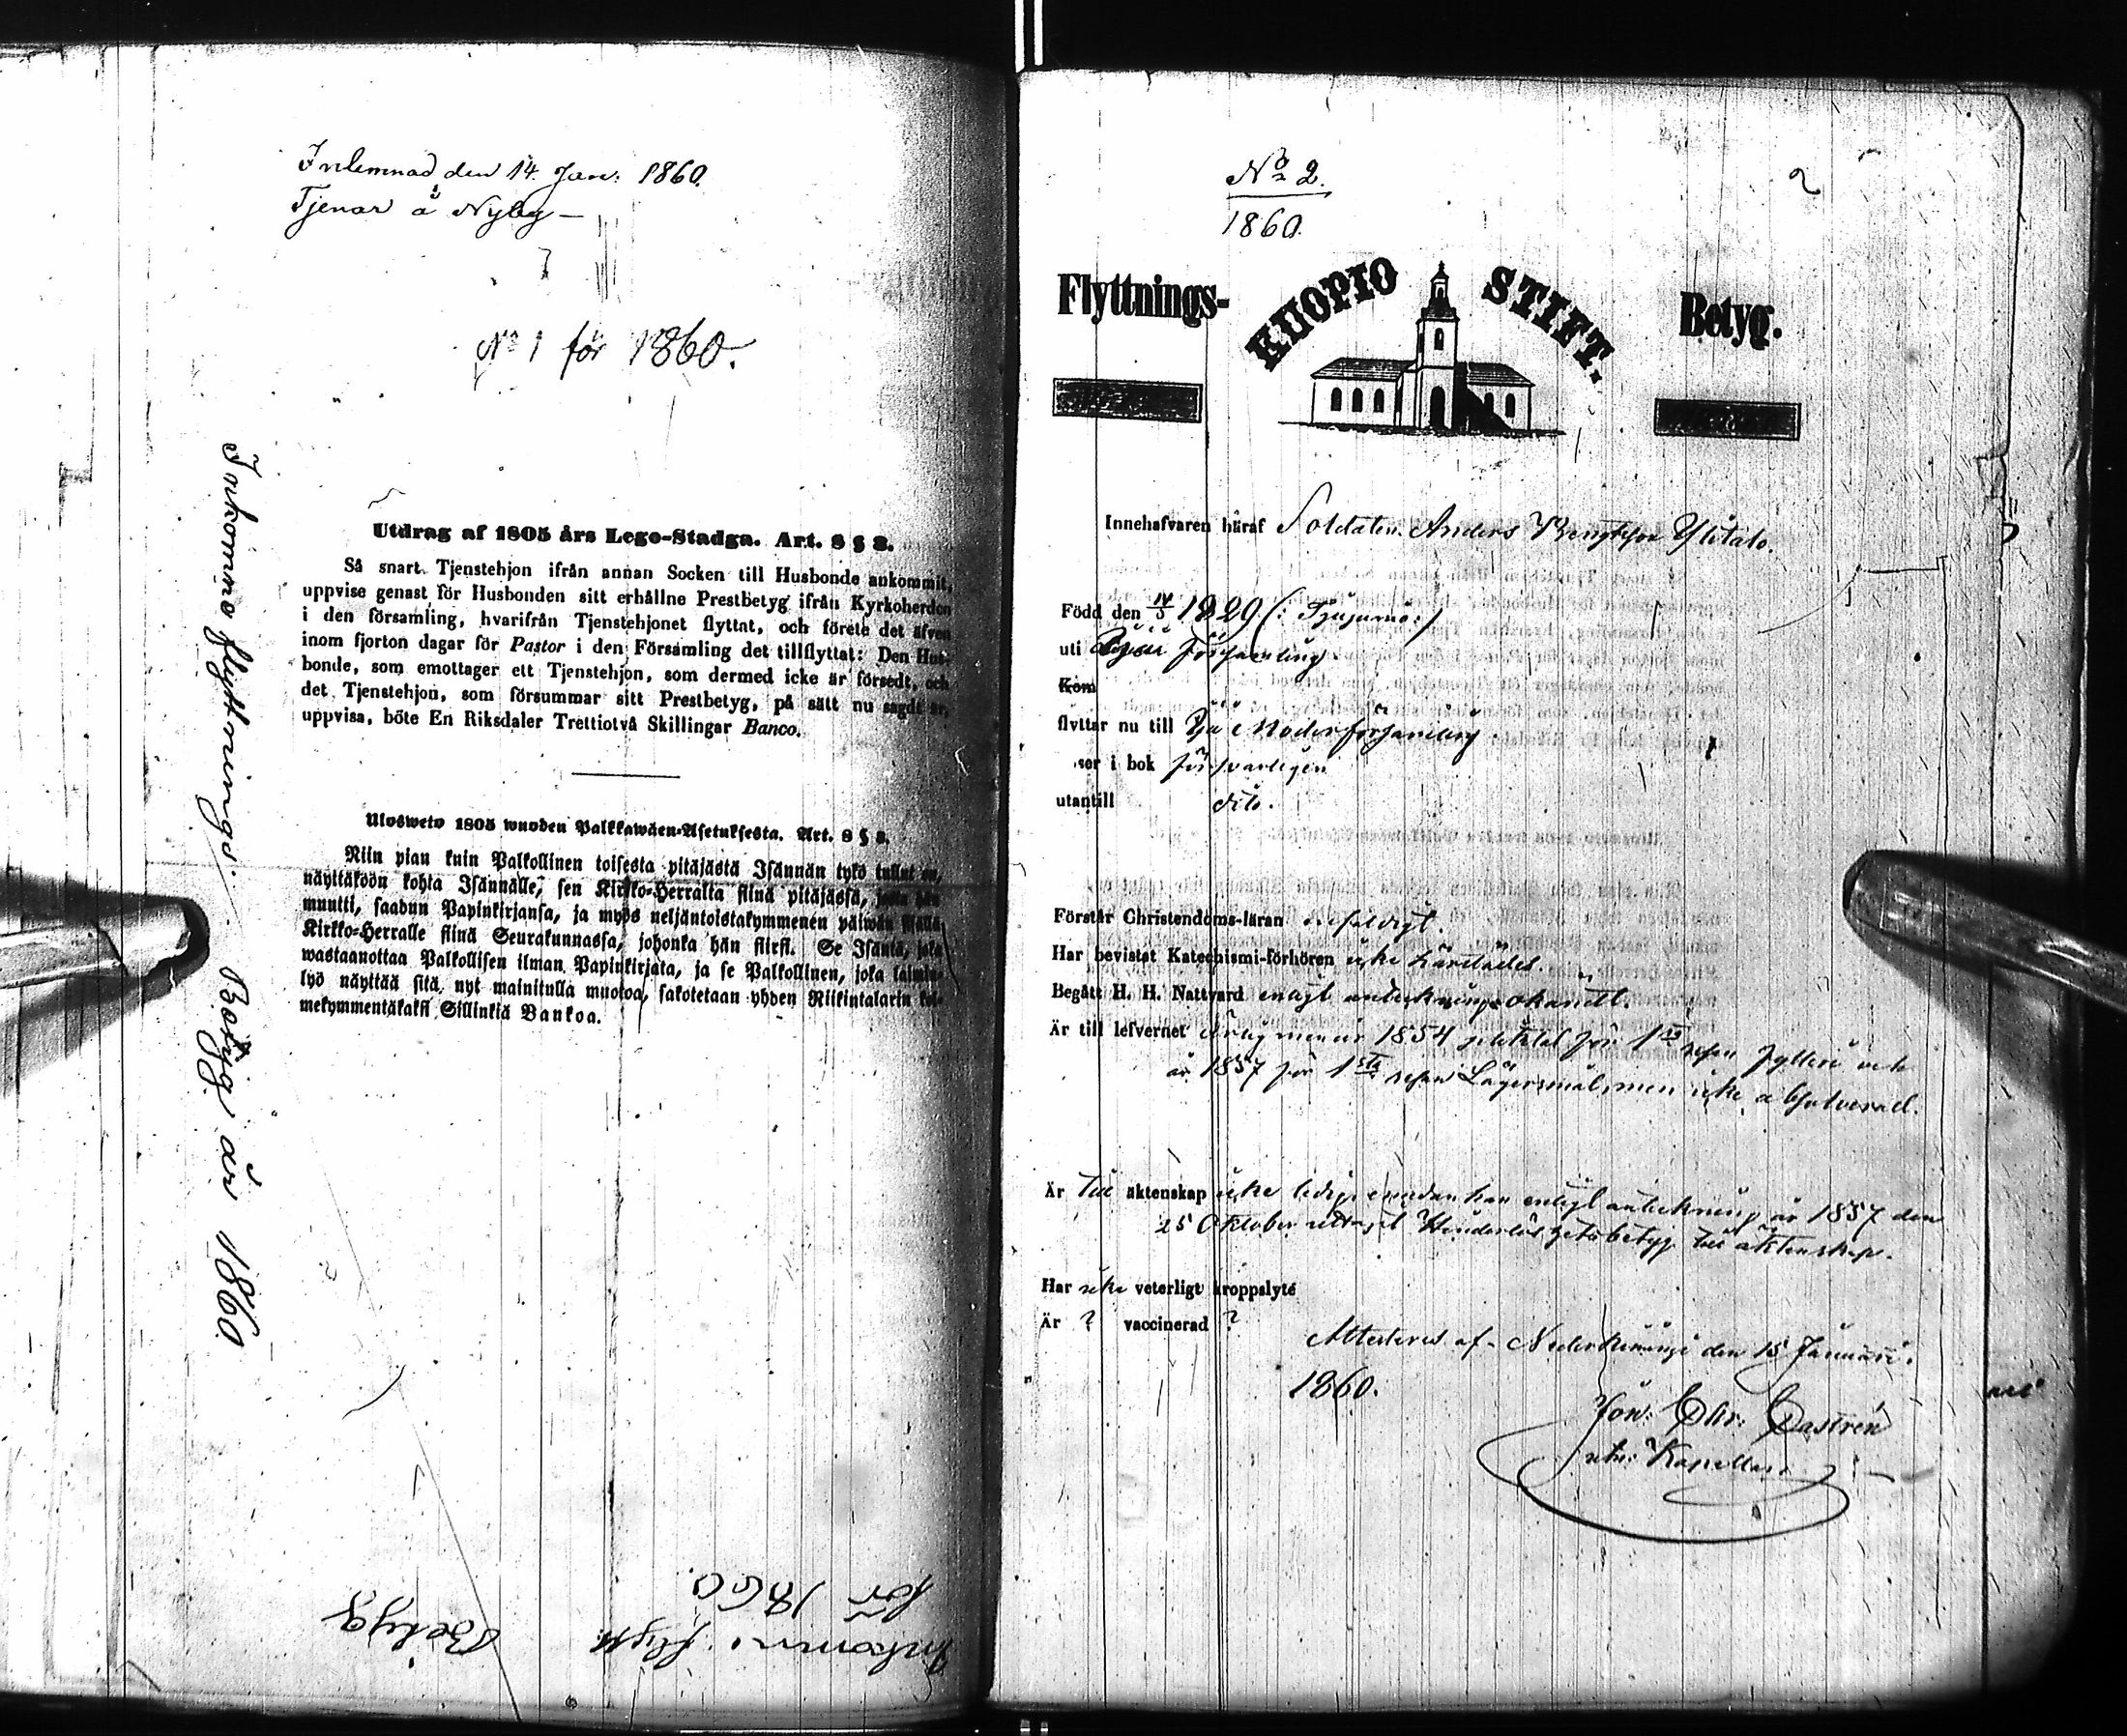 Inlemnad den 14. Jan: 1860.
Tjenar å Nyby
No 1 för 1860.
Inkomne flyttnings Betyg år 1860
Utdrag af 1805 års Lego-Stadga. Art. 8 § 3.
Så snart Tjenstehjon ifrån annan Socken till Husbonde ankommit,
uppvise genast för Husbonden sitt erhållne Prestbetyg ifrån Kyrkoherden
i den församling, hvarifrån Tjenstehjonet flyttat, och förete det äfven
inom fjorton dagar för Pastor i den Församling det tillflyttat: Den Hus-
bonde, som emottager ett Tjenstehjon, som dermed icke är försedt, och
det Tjenstehjon, som försummar sitt Prestbetyg, på sätt nu sagdt är,
uppvisa, böte En Riksdaler Trettiotvå Skillingar Banco.
Ulosweto 1805 wuoden Palkkawäen-Asetuksesta. Art. 8 § 3.
Niin pian kuin Palkollinen toisesta pitäjästä Isännän tykö tullut on,
näyttäköön kohta Isännälle, sen Kirkko-Herralta siinä pitäjässä, josta hän
muutti, saadun Papinkirjansa, ja myös neljäntoistakymmenen päiwän sisällä
Kirkko-Herralle siinä Seurakunnassa, johonka hän siirsi. Se Isäntä, joka
wastaanottaa Palkollisen ilman Papinkirjata, ja se Palkollinen, joka laimin-
lyö näyttää sitä, nyt mainitulla muotoa, sakotetaan yhden Riikintalarin kol-
mekymmentäkaksi Sillinkiä Bankoa.
Inkomne flytt: Betyg
för 1860.
No 2.
1860.
2
Flyttnings- KUOPIO STIFT. Betyg.
Innehafvaren häraf Soldaten Anders Bengtsson Ylitalo.
Född den 1829
uti församling
Kom
flyttar nu till Ijo Moderförsamling
ser i bok försvarligen
utantill dito.
Förstår Christendoms-läran enfaldigt.
Har bevistat Katechismi-förhören icke härstädes.
Begått H. H. Nattvard enligt anteckning okändt.
Är till lefvernet ärlig men år 1854 för 1sta resan fylleri och
år 1857 för 1sta resan Lägersmål, men icke absolverad.
Är till äktenskap icke ledig emedan han enligt anteckning år 1857 den
25 Oktober uttagit Hinderlöshetsbetyg till äktenskap.
Har icke veterligt kroppslyte
Är ? vaccinerad ?
Attesteras af Nederkiminge den 15 Januari
1860.
Jon: Chr: Castrén
Kapellan